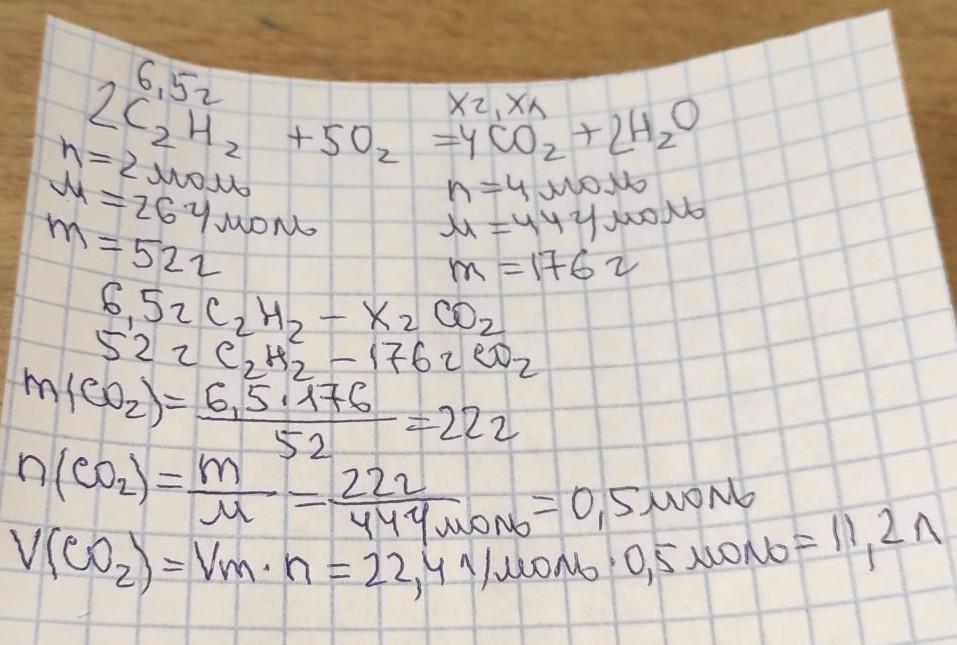 6,5г xг, xл
2C₂H₂ + 5O₂ = 4CO₂ + 2H₂O
n = 2 моль n = 4 моль
M = 26 г/моль M = 44 г/моль
m = 52 г m = 176 г
6,5г C₂H₂ – xг CO₂
52 г C₂H₂ – 176 г CO₂
m(CO₂) = 6,5·176 / 52 = 22г
n(CO₂) = m / M = 22г / 44 г/моль = 0,5 моль
V(CO₂) = Vm · n = 22,4 л/моль · 0,5 моль = 11,2 л